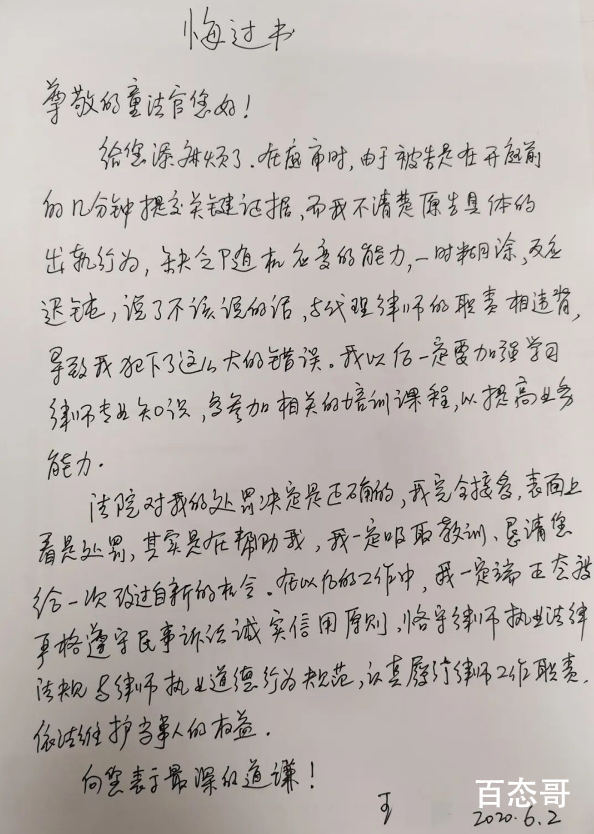 悔过书
尊敬的童法官您好！
给您添麻烦了.在庭审时,由于被告是在开庭前
的几分钟提交关键证据,而我不清楚原告具体的
出轨行为,缺乏随机应变的能力,一时糊涂,反应
迟钝,说了不该说的话,与代理律师的职责相违背,
导致我犯下了这么大的错误。我以后一定要加强学习
律师专业知识,多参加相关的培训课程,以提高业务
能力.
法院对我的处罚决定是正确的,我完全接受,表面上
看是处罚,其实是在帮助我,我一定吸取教训、恳请您
给一次改过自新的机会。在以后的工作中,我一定端正态度
严格遵守民事诉讼诚实信用原则,恪守律师执业法律
法规与律师执业道德行为规范,认真履行律师工作职责,
依法维护当事人的权益.
向您表示最深的道谦!
2020.6.2
百态哥